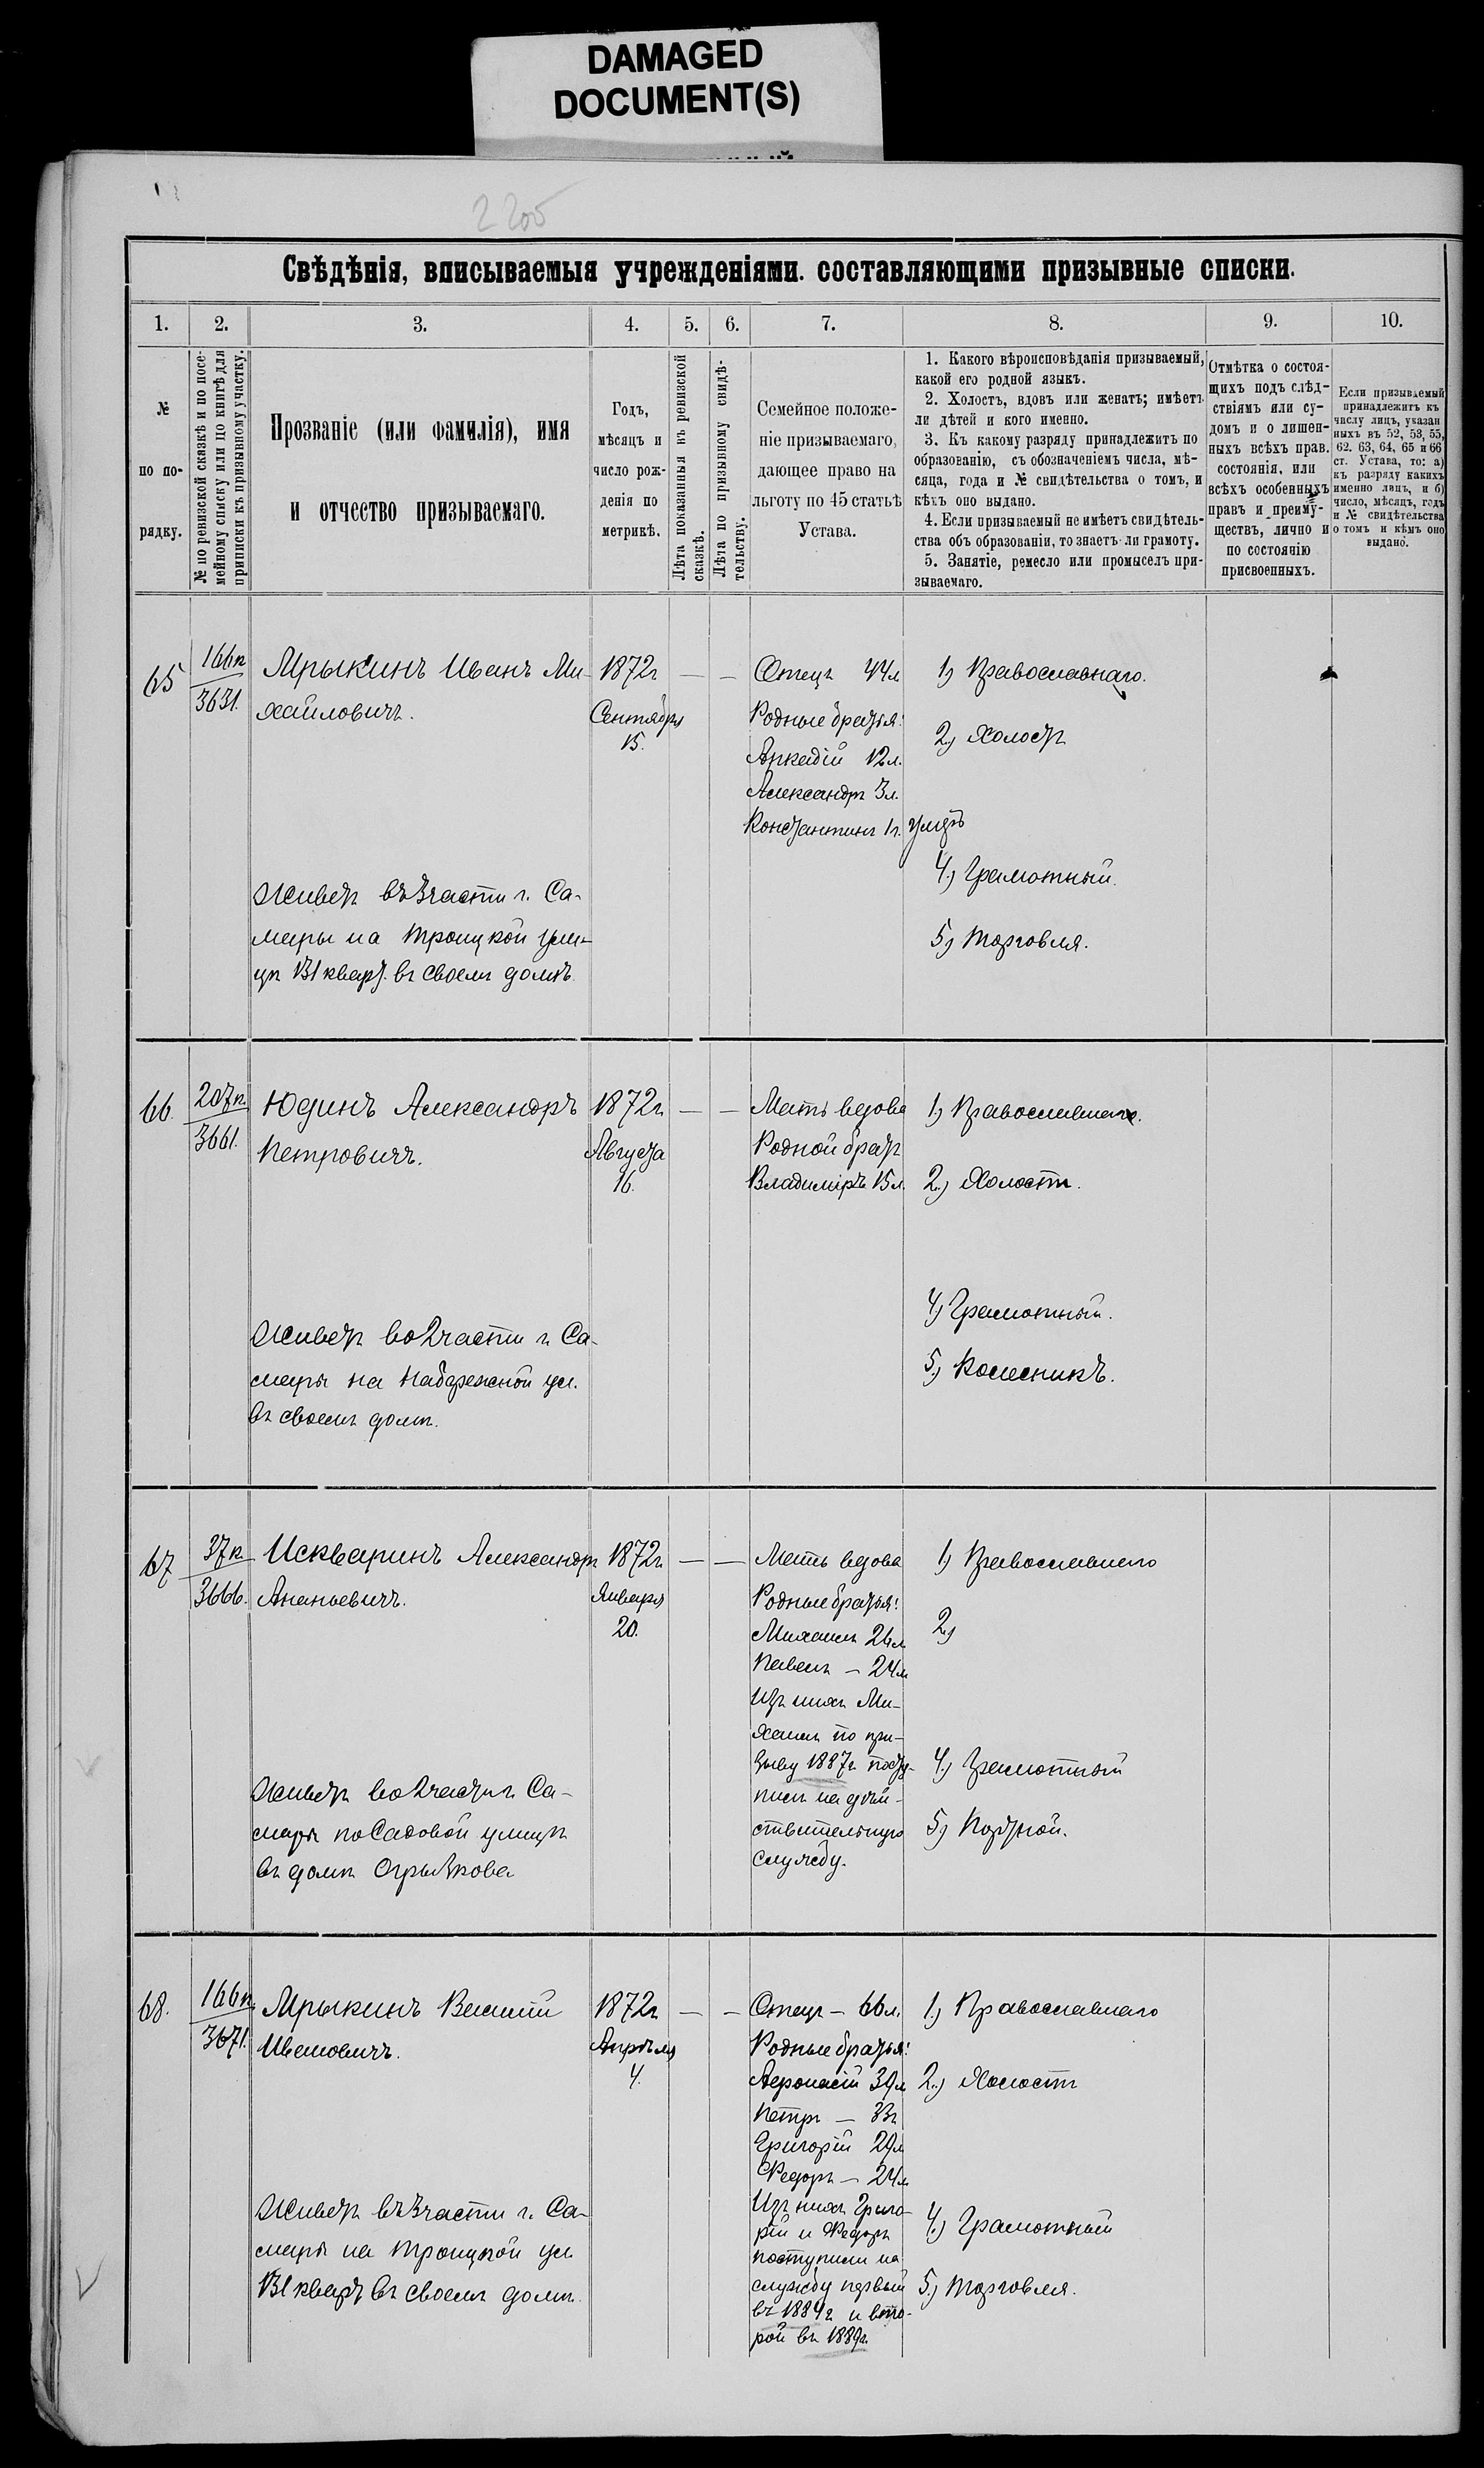 DAMAGED
DOCUMENT(S)
2205
Свѣдѣнія, вписываемыя учрежденіями. составляющими призывные списки.
1. 2. 3. 4. 5. 6. 7. 8. 9. 10.
№
по по-
рядку.
№ по ревизской сказкѣ и по посе-
мейному списку или по книгѣ для
приписки къ призывному участку.
Прозваніе (или фамилія), имя
и отчество призываемаго.
Годъ,
мѣсяцъ и
число рож-
денія по
метрикѣ.
Лѣта показанныя къ ревизской
сказкѣ.
Лѣта по призывному свидѣ-
тельству.
Семейное положе-
ніе призываемаго,
дающее право на
льготу по 45 статьѣ
Устава.
1. Какого вѣроисповѣданія призываемый,
какой его родной языкъ.
2. Холостъ, вдовъ или женатъ; имѣетъ
ли дѣтей и кого именно.
3. Къ какому разряду принадлежитъ по
образованію, съ обозначеніемъ числа, мѣ-
сяца, года и № свидѣтельства о томъ, и
кѣмъ оно выдано.
4. Если призываемый не имѣетъ свидѣтель-
ства объ образованіи, то знаетъ ли грамоту.
5. Занятіе, ремесло или промыселъ при-
зываемаго.
Отмѣтка о состоя-
щихъ подъ слѣд-
ствіямъ или су-
домъ и о лишен-
ныхъ всѣхъ прав.
состоянія, или
всѣхъ особенныхъ
правъ и преиму-
ществъ, лично и
по состоянію
присвоенныхъ.
Если призываемый
принадлежитъ къ
числу лицъ, указан
ныхъ въ 52, 53, 55,
62. 63, 64, 65 и 66
ст. Устава, то: а)
къ разряду какихъ
именно лицъ, и б)
число, мѣсяцъ, годъ
и № свидѣтельства
о томъ и кѣмъ оно
выдано.
65
166п
3631.
Мрыкинъ Иванъ Ми-
хайловичъ.
Живетъ въ 3 части г. Са-
мары на Троицкой ули-
цѣ 131 кварт. въ своемъ домѣ.
1872г
Сентября
15.
— —
Отецъ 44л
Родные братья:
Аркадій 12л.
Александръ 3л.
Константинъ 1г.
1) Православнаго.
2) Холостъ
4.) Грамотный.
5) Торговля.
66.
207п.
3661.
Юдинъ Александръ
Петровичъ.
Живетъ во 2 части г. Са-
мары на Набережной ул.
въ своемъ домѣ.
1872г
Августа
16.
— —
Мать вдова
Родной братъ
Владиміръ 15л.
1) Православнаго.
2.) Холостъ.
4) Грамотный.
5.) Колесникъ.
67
37п.
3666.
Искваринъ Александръ
Ананьевичъ.
Живетъ во 2 части г. Са-
мары по Садовой улицѣ
въ домѣ Огрызкова
1872г
Января
20.
— —
Мать вдова
Родные братья:
Михаилъ 26л
Павелъ — 24л
Изъ нихъ Ми-
хаилъ по при-
зыву 1887г посту-
пилъ на дѣй-
ствительную
службу.
1) Православнаго
2)
4.) Грамотный
5) Портной.
68.
166п.
3671.
Мрыкинъ Василій
Ивановичъ.
Живетъ въ 3 части г. Са-
мары на Троицкой ул.
131 кварт въ своемъ домѣ.
1872г
Апрѣля
4.
— —
Отецъ — 66л.
Родные братья:
Афонасій 39л
Петръ — 33г
Григорій 29л
Федоръ — 24л
Изъ нихъ Григо-
рій и Федоръ
поступили на
службу первый
въ 1884г и вто-
рой въ 1889г.
1.) Православнаго
2.) Холостъ
4.) Грамотный
5.) Торговля.